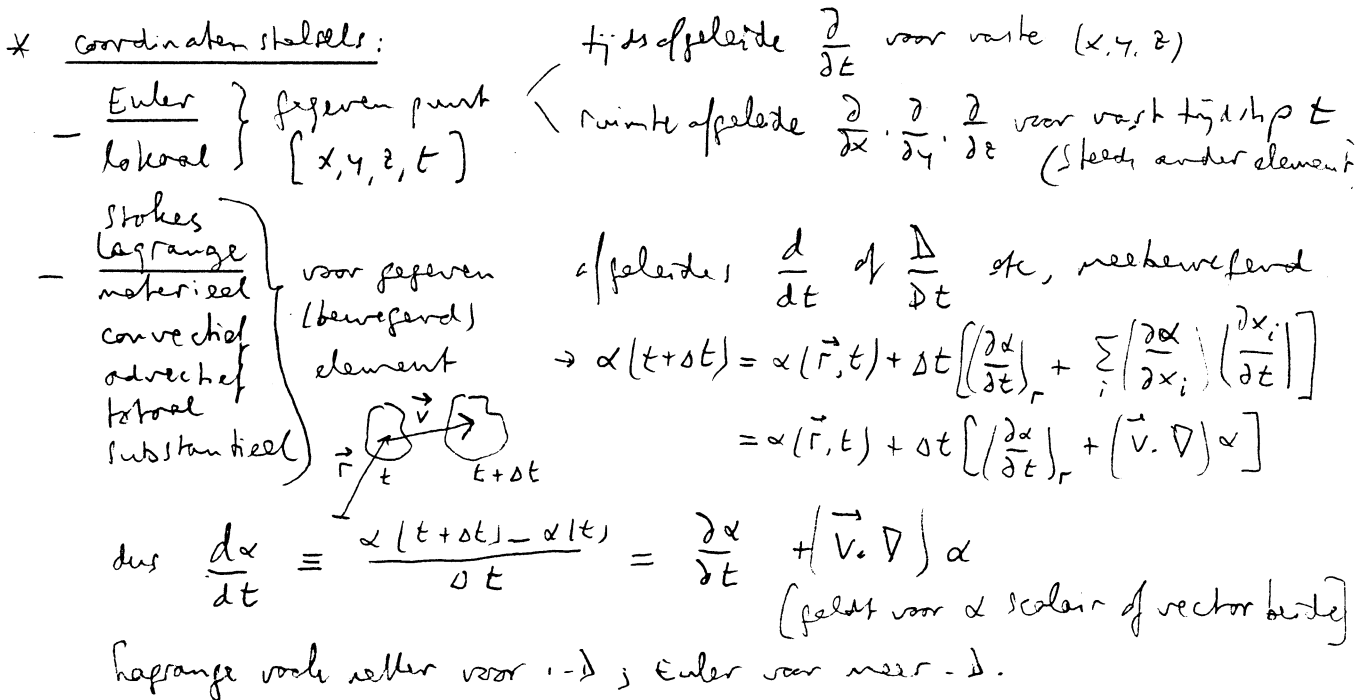 * coordinaten stelsels:
tijdsafgeleide ∂/∂t voor vaste (x,y,z)
- Euler lokaal } gegeven punt [x,y,z,t]
ruimte afgeleide ∂/∂x . ∂/∂y . ∂/∂z voor vast tijdstip t
(steeds ander element)
- Stokes
Lagrange
materieel
convectief
advectief
totaal
substantieel
voor gegeven
(bewegend)
element
afgeleides d/dt of D/Dt etc, meebewegend
→ α(t+Δt) = α(r⃗,t) + Δt[(∂α/∂t)_r + Σ_i (∂α/∂x_i)(∂x_i/∂t)]
= α(r⃗,t) + Δt[(∂α/∂t)_r + (v⃗.∇)α]
r⃗ t v⃗ t+Δt
dus dα/dt ≡ (α(t+Δt) - α(t))/Δt = ∂α/∂t + (v⃗.∇)α
(geldt voor α scalair of vector beide)
Lagrange vaak voor 1-D ; Euler voor meer-D.